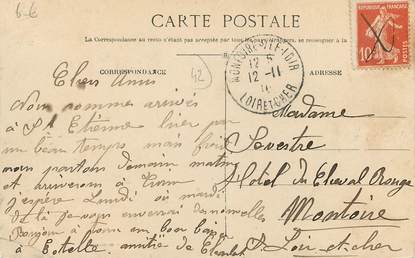 6-6
CARTE POSTALE
La Correspondance au recto n'est pas acceptée par tous les pays étrangers, se renseigner à la
CORRESPONDANCE
ADRESSE
42
MONTOIRE-S-LE-LOIR
12-11
LOIR ET CHER
RÉPUBLIQUE FRANÇAISE
10
POSTES
Chers Amis
Nous sommes arrivés
à St Etienne hier par
un beau temps mais froid
nous partons demain matin
et arriverons à
j'espère Lundi ou mardi
de là je vous enverrai des nouvelles
Bonjour à tous un bon baiser
à Estelle amitié de
Madame
Sevestre
Hotel du Cheval Rouge
Montoire
Loir et cher